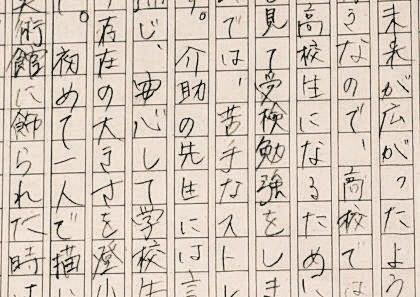 未来が広がったよう
うなので、高校では
高校生になるために
見て受検勉強をしま
では、苦手なストレ
す。介助の先生には言
じ、安心して学校生
存在の大きさを登
。初めて一人で描い
美術館に飾られた時は